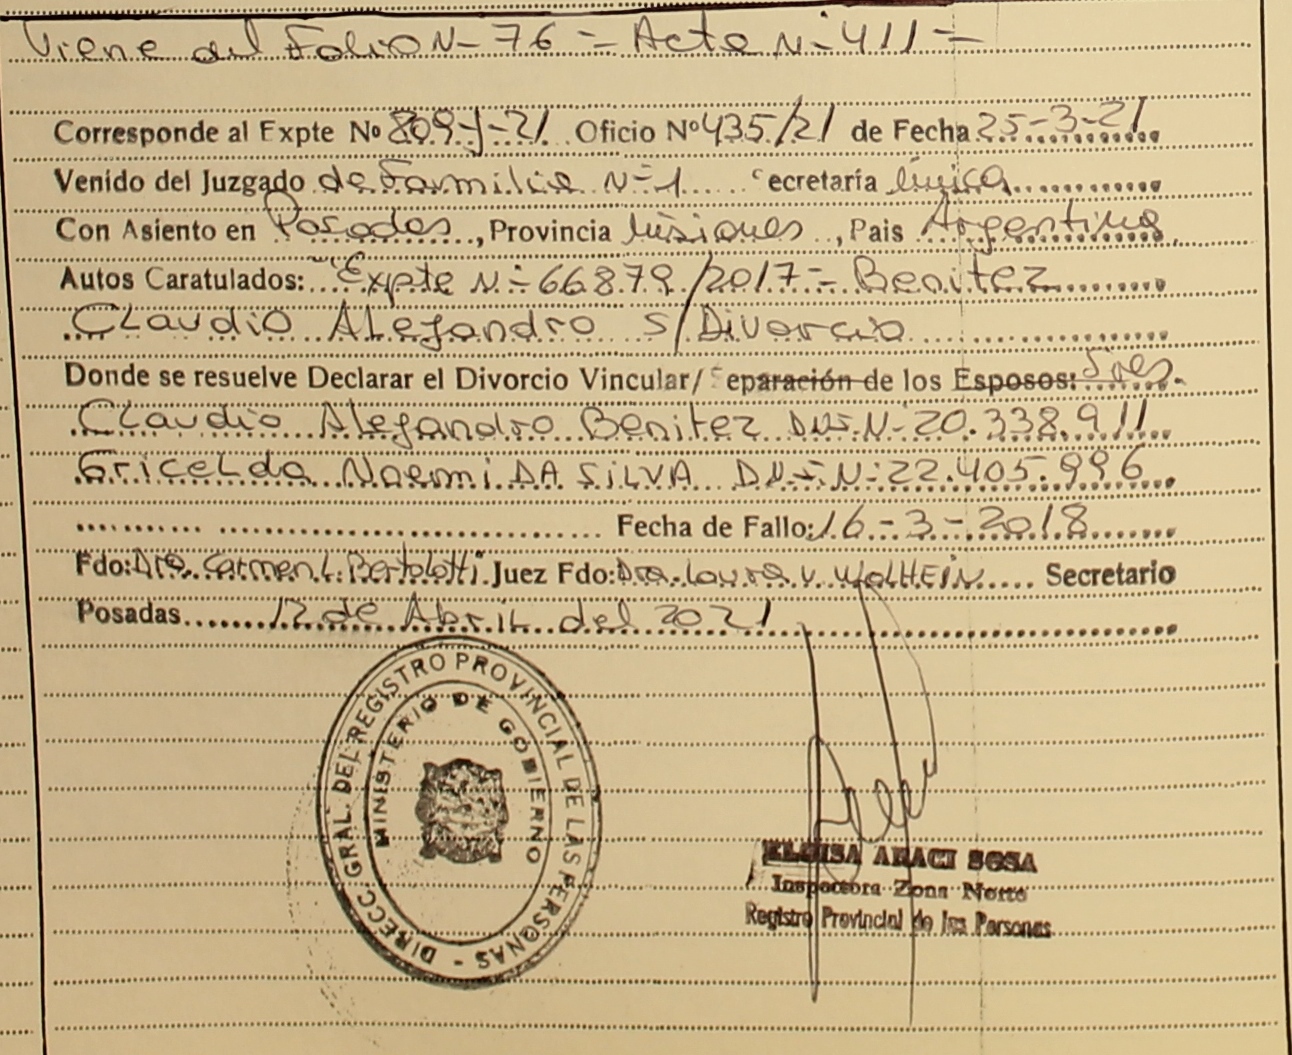 Viene del Folio N- 76 - Acta N- 411 -
Corresponde al Expte Nº 809-J-21 Oficio Nº 435/21 de Fecha 25-3-21
Venido del Juzgado de Familia Nº 1 Secretaría Única
Con Asiento en Posadas, Provincia Misiones, Pais Argentina
Autos Caratulados: "Expte N- 66879/2017 - Benitez
Claudio Alejandro s/Divorcio
Donde se resuelve Declarar el Divorcio Vincular/ Separación de los Esposos: Sres.
Claudio Alejandro Benitez DNI-N- 20.338.911
Gricelda Noemi DA SILVA D.N.I-N- 22.405.996
Fecha de Fallo: 16-3-2018
Fdo: Dra. Carmen L. Bertolotti Juez Fdo: Dra. Laura V. WOLHEIN Secretario
Posadas 12 de Abril del 2021
DIRECC. GRAL. DEL REGISTRO PROVINCIAL DE LAS PERSONAS -
MINISTERIO DE GOBIERNO
ELOISA ARACI SOSA
Inspectora Zona Norte
Registro Provincial de las Personas